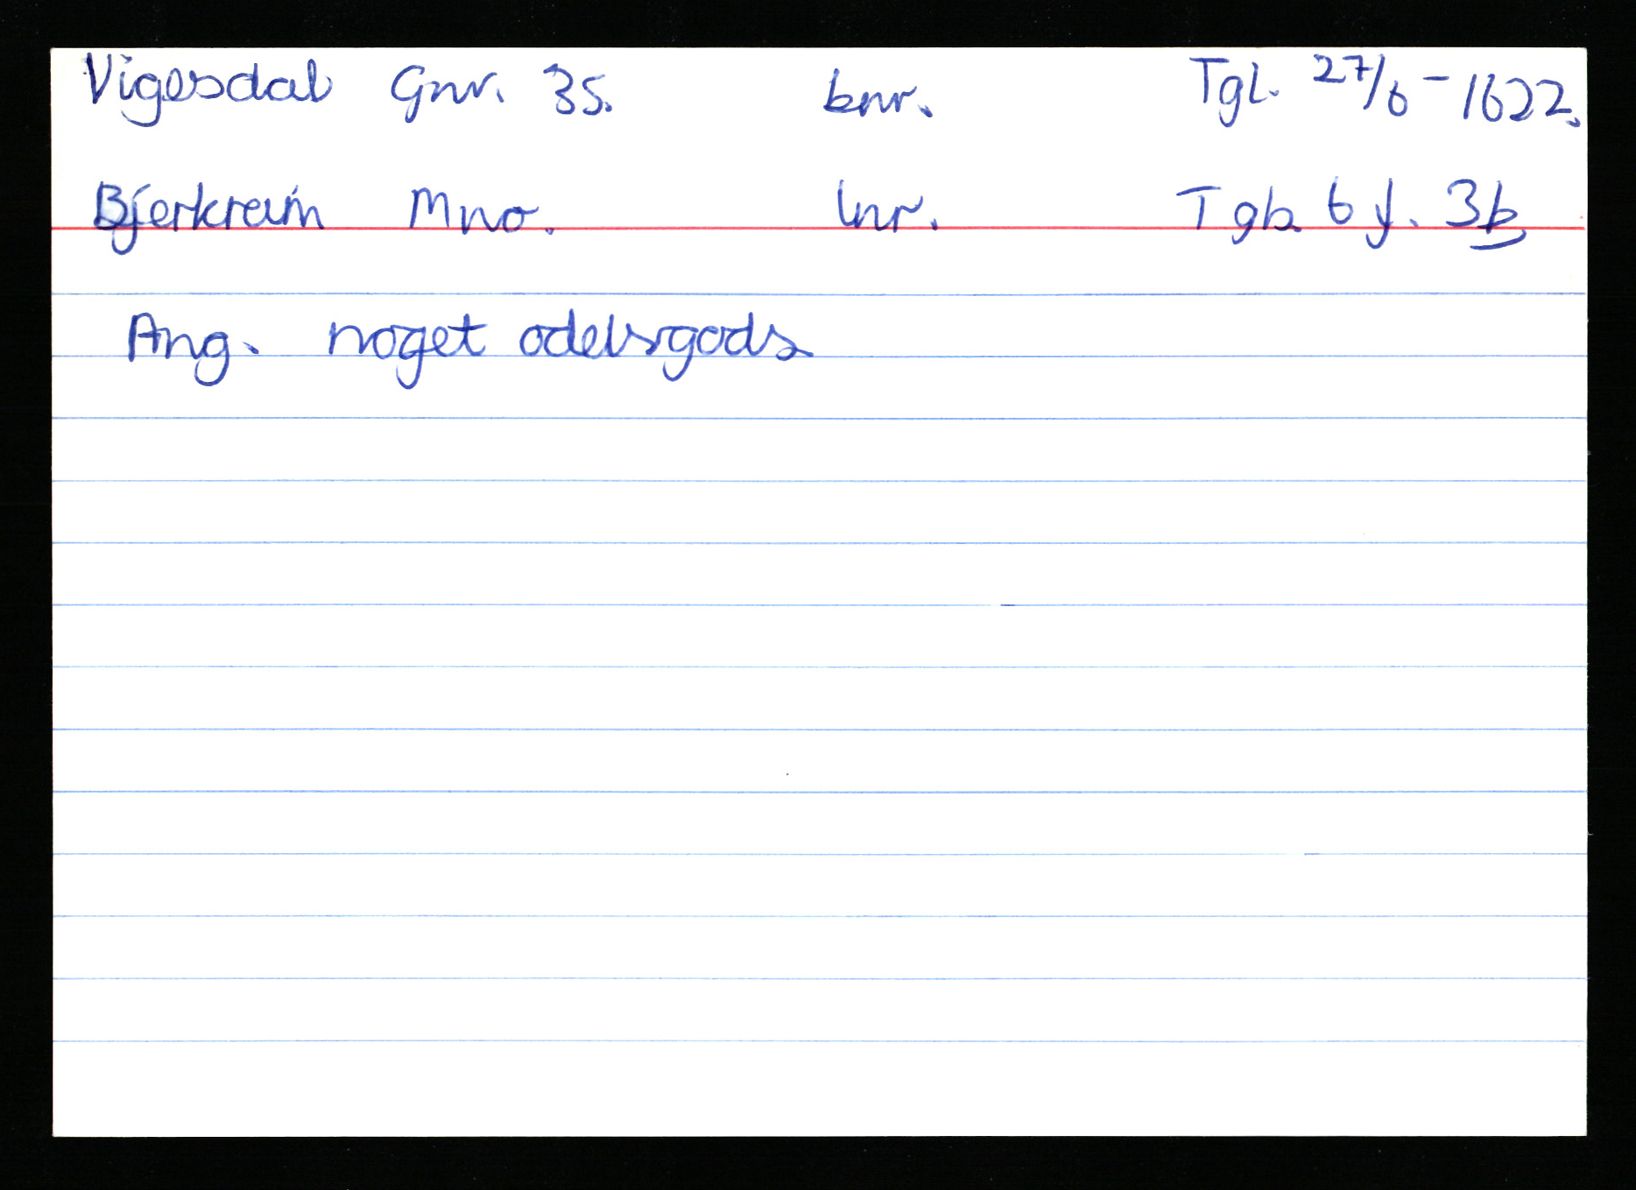 Vigesdal Gnr. 35. bnr. Tgl. 27/6-1622.
Bjerkreim Mno. lnr. Tgb. 6 f. 3b
Ang. noget odelsgods